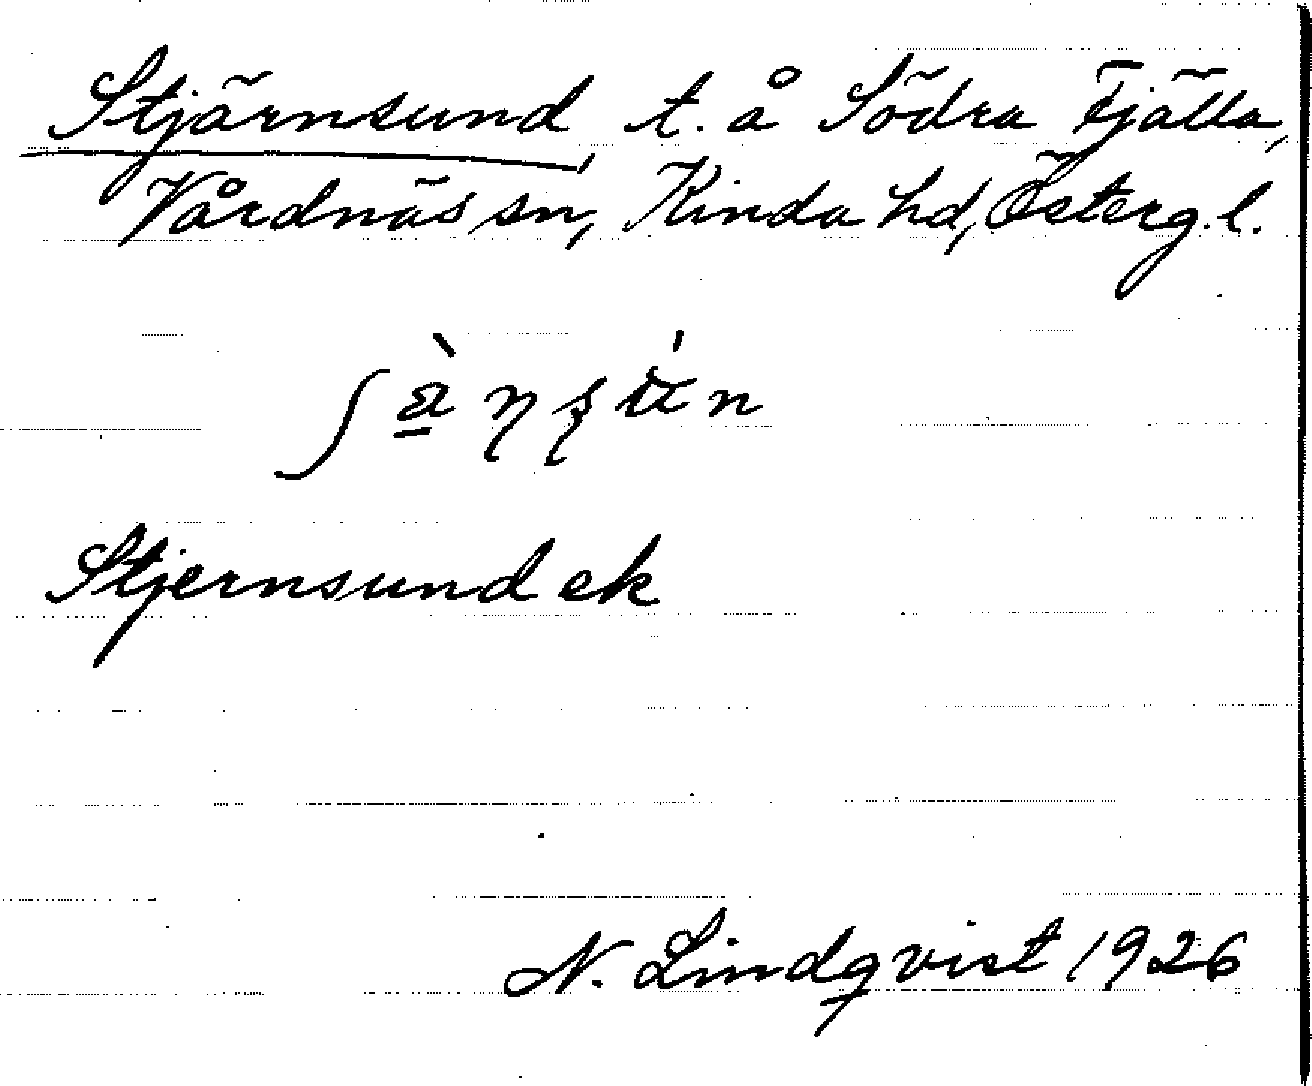 Stjärnsund, t. å Södra Fjälla,
Vårdnäs sn, Kinda hd, Österg. l.
Stjernsund ek
N. Lindqvist 1926